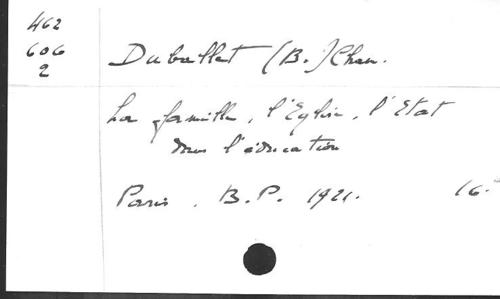 462
606
2
Duballet (B.) Chan.
La famille, l'Eglise, l'Etat
dans l'éducation
Paris. B.P. 1921. 16°